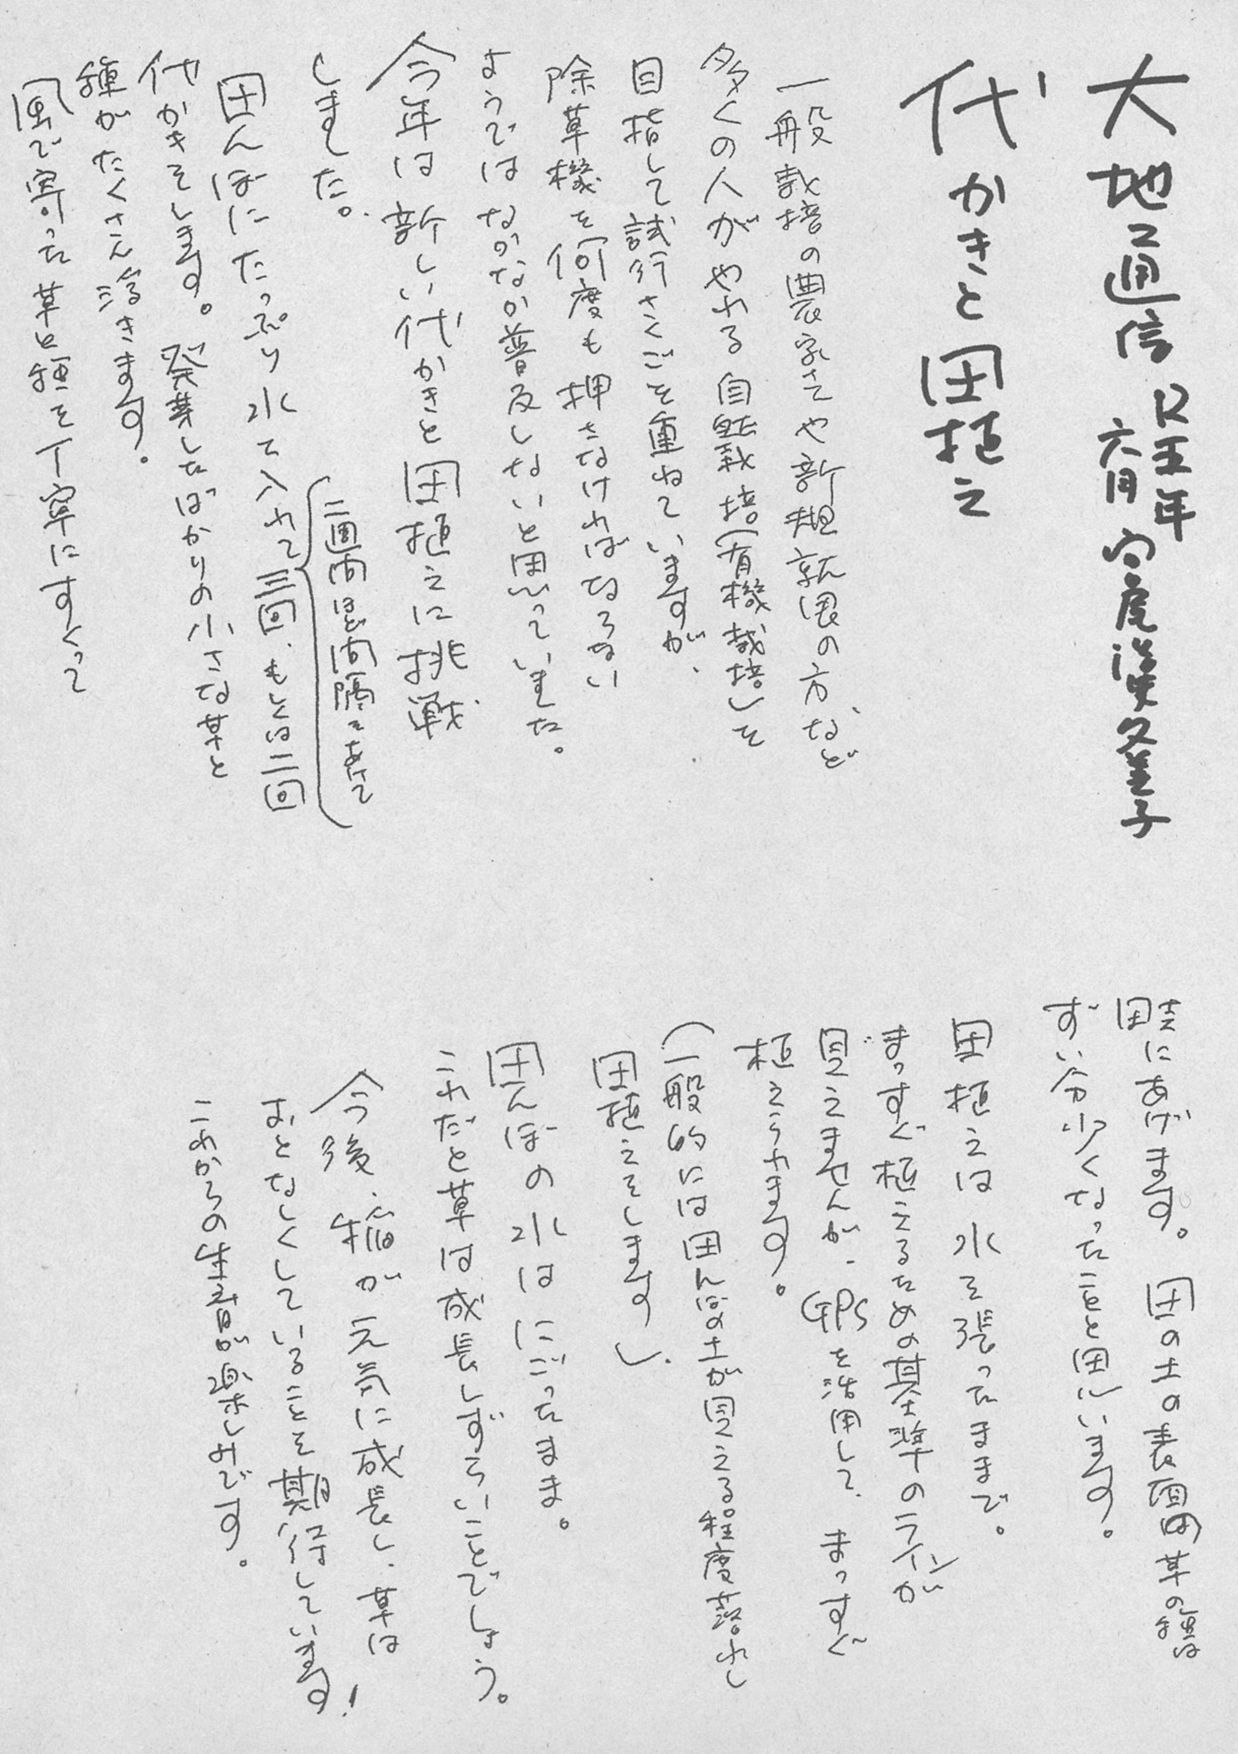 大地通信 R五年
六月
代かきと田植え
一般栽培の農家さんや新規就農の方など
多くの人がやれる自然栽培(有機栽培)を
目指して試行さくごを重ねていますが、
除草機を何度も押さなければならない
ようではなかなか普及しないと思っていました。
今年は新しい代かきと田植えに挑戦
しました。
田んぼにたっぷり水を入れて三回、もしくは二回
(二週間ほど間隔をあけて)
代かきをします。発芽したばかりの小さな草と
種がたくさん浮きます。
風で寄った草と種を丁寧にすくって
畦にあげます。田の土の表面の草の種は
ずい分少くなったことと思います。
田植えは水を張ったままで。
まっすぐ植えるための基準のラインが
見えませんが、GPSを活用して、まっすぐ
植えられます。
(一般的には田んぼの土が見える程度落水し
田植えをします)。
田んぼの水はにごったまま。
これだと草は成長しずらいことでしょう。
今後、稲が元気に成長し、草は
おとなしくしていることを期待しています!
これからの生育が楽しみです。